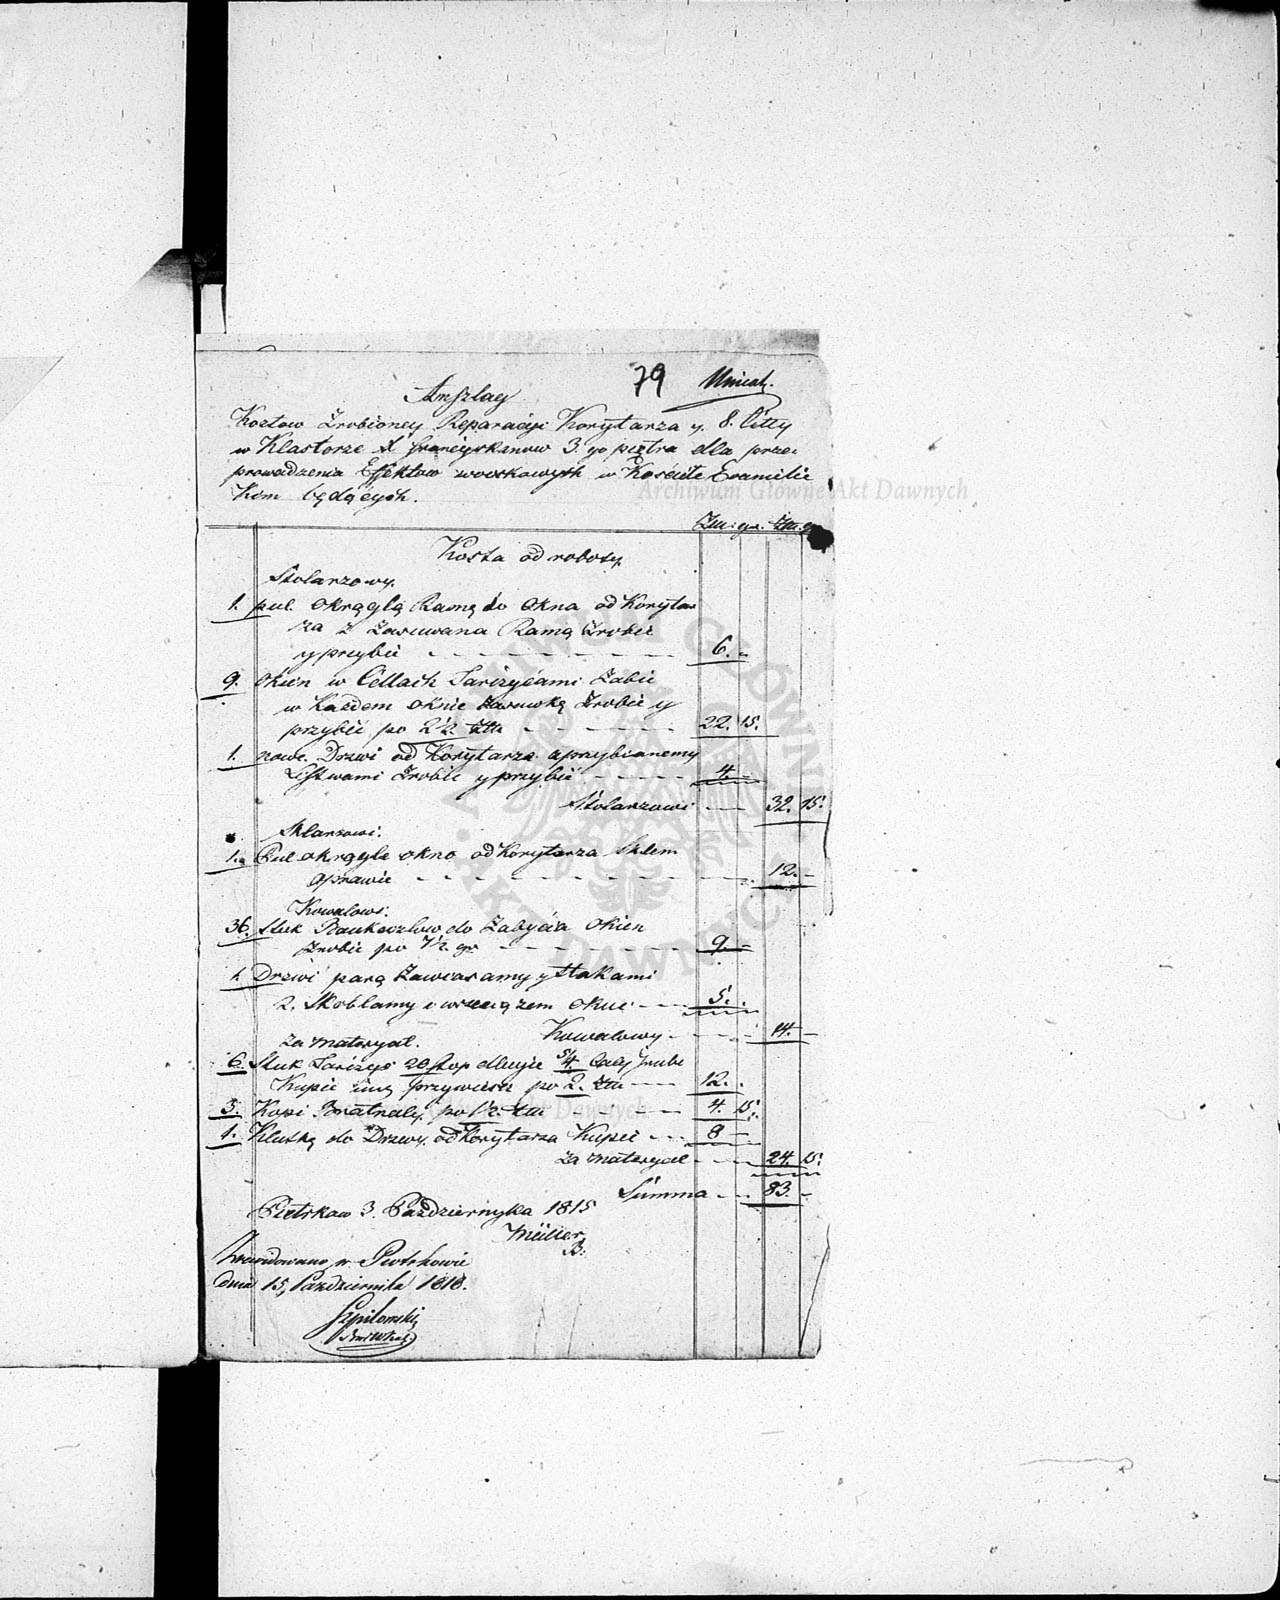 79 Unicat.
Anszlag
Kosztow Zrobioney Reparacyi Korytarza y 8. Celly
w Klastorze Franciyskanow 3.go piętra dla prze=
prowadzenia Effektow woyskowych w Kosciele
Kom będących.
Archiwum Główne Akt Dawnych
Złt: gr. Złt. gr.
Koszta od roboty
Stolarzowy.
1. pul okrągłą Ramę do Okna od Koryta=
rza z Zasuwana Ramą Zrobić
y przybić 6. -
9. Okien w Cellach Tarczycami Zabić
w Każdem oknie Zasuwkę Zrobić y
przybić po 2½ Złt 22. 15.
1. nowe Drzwi od Korytarza
Listwami Zrobić y przybić 4. -
Stolarzowi 32. 15.
Sklarzowi.
1. Pul okrągłe okno od Korytarza Sklem
Oprawić 12. -
Kowalowi.
36. Stuk do Zabycia Okien
Zrobić po 7½ gr 9. -
1. Drzwi parą Zawiasamy y Hakami
2. Skoblamy i wrzeciązem Okuć 5. -
Kowalowy 14. -
Za materyał.
6. Stuk Tarczyc 20 stop długie 5/4 Caly grube
Kupić przywieść po 2. Złt 12. -
3. Kopi Bratnaly po 1½ Złt 4. 15.
1. Klutkę do Drzwy od Korytarza Kupić 8 -
Za materyał 24. 15.
Summa 83. -
Pietrkow 3. Pazdziernyka 1815
Müller
B:
Zrewidowano w Piotrkowie
dnia 15, Pazdziernika 1818.
Szpilowski
ARCHIWUM GŁÓWNE AKT DAWNYCH